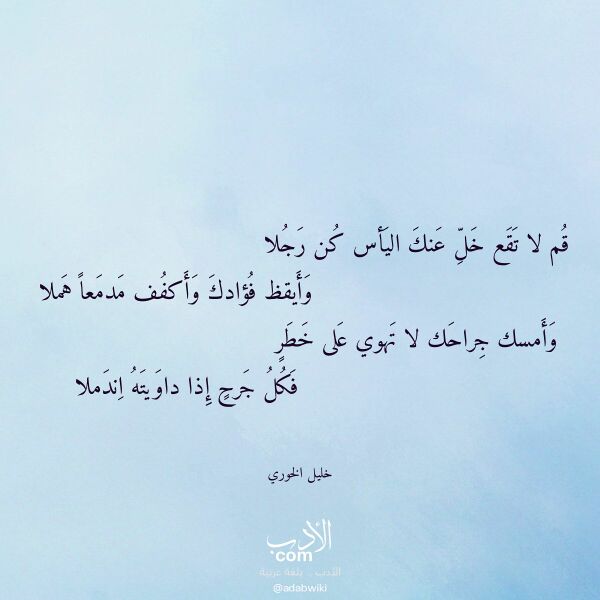 قُم لا تَقَع خَلِّ عَنكَ اليَأس كُن رَجُلا
وَأَيقظ فُؤادكَ وَأَكفُف مَدمَعاً هَملا
وَأَمسك جِراحَك لا تَهوي عَلى خَطَرٍ
فَكُلُ جَرحٍ إِذا داوَيتَهُ اِندَملا
خليل الخوري
الأدب
com
الأدب .. بلغة عربية
@adabwiki